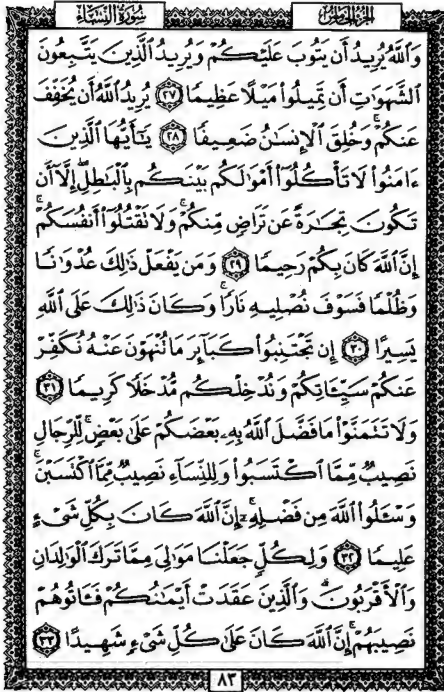 الجزء الخامس سورة النساء
وَاللَّهُ يُرِيدُ أَن يَتُوبَ عَلَيْكُمْ وَيُرِيدُ الَّذِينَ يَتَّبِعُونَ
الشَّهَوَاتِ أَن تَمِيلُوا مَيْلًا عَظِيمًا ٢٧ يُرِيدُ اللَّهُ أَن يُخَفِّفَ
عَنكُمْ ۚ وَخُلِقَ الْإِنسَانُ ضَعِيفًا ٢٨ يَٰٓأَيُّهَا الَّذِينَ
ءَامَنُوا لَا تَأْكُلُوٓا أَمْوَٰلَكُم بَيْنَكُم بِالْبَٰطِلِ إِلَّآ أَن
تَكُونَ تِجَٰرَةً عَن تَرَاضٍ مِّنكُمْ ۚ وَلَا تَقْتُلُوٓا أَنفُسَكُمْ ۚ
إِنَّ اللَّهَ كَانَ بِكُمْ رَحِيمًا ٢٩ وَمَن يَفْعَلْ ذَٰلِكَ عُدْوَٰنًا
وَظُلْمًا فَسَوْفَ نُصْلِيهِ نَارًا ۚ وَكَانَ ذَٰلِكَ عَلَى اللَّهِ
يَسِيرًا ٣٠ إِن تَجْتَنِبُوا كَبَآئِرَ مَا تُنْهَوْنَ عَنْهُ نُكَفِّرْ
عَنكُمْ سَيِّـَٔاتِكُمْ وَنُدْخِلْكُم مُّدْخَلًا كَرِيمًا ٣١
وَلَا تَتَمَنَّوْا مَا فَضَّلَ اللَّهُ بِهِۦ بَعْضَكُمْ عَلَىٰ بَعْضٍ ۚ لِّلرِّجَالِ
نَصِيبٌ مِّمَّا اكْتَسَبُوا ۖ وَلِلنِّسَآءِ نَصِيبٌ مِّمَّا اكْتَسَبْنَ ۚ
وَسْـَٔلُوا اللَّهَ مِن فَضْلِهِۦٓ ۗ إِنَّ اللَّهَ كَانَ بِكُلِّ شَىْءٍ
عَلِيمًا ٣٢ وَلِكُلٍّ جَعَلْنَا مَوَٰلِىَ مِمَّا تَرَكَ الْوَٰلِدَانِ
وَالْأَقْرَبُونَ ۚ وَالَّذِينَ عَقَدَتْ أَيْمَٰنُكُمْ فَـَٔاتُوهُمْ
نَصِيبَهُمْ ۚ إِنَّ اللَّهَ كَانَ عَلَىٰ كُلِّ شَىْءٍ شَهِيدًا ٣٣
٨٣